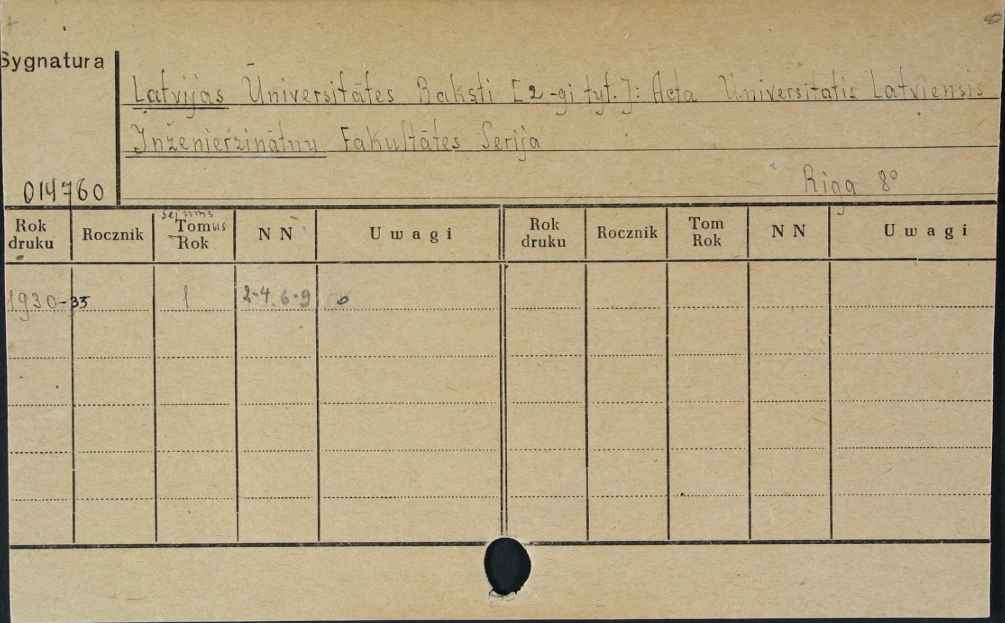 Sygnatura
Latvijas Ūniversitātes Raksti [2-gi tyt.]: Acta Universitatis Latviensis
Inženierzinātņu Fakultātes Serija
014760
Riga 8°
Rok druku Rocznik Tomus Rok N N Uwagi Rok druku Rocznik Tom Rok N N Uwagi
1930-35 1 2-4. 6-9